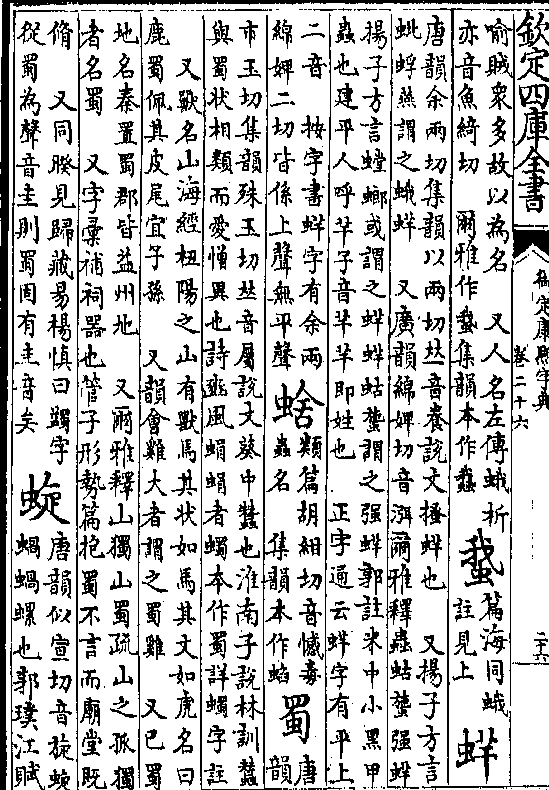 欽定四庫全書
御定康熙字典
卷二十六
二十六
喻賊衆多故以為名　又人名左傳蛾析
亦音魚綺切　爾雅作螘集韻本作螘
䖸
篇海同蛾
註見上
蛘
唐韻余兩切集韻以兩切𠀤音養說文搔蛘也　又揚子方言
蚍蜉燕謂之蛾蛘　又廣韻綿婢切音渳爾雅釋蟲蛄䗐强蛘
揚子方言螳螂或謂之蛘蛘蛄䗐謂之强蛘郭註米中小黑甲
蟲也建平人呼芊子音芊芊即姓也　正字通云蛘字有平上
二音　按字書蛘字有余兩
綿婢二切皆係上聲無平聲
蛿
類篇胡紺切音憾毒
蟲名　集韻本作蜭
蜀
唐
韻
市玉切集韻殊玉切𠀤音屬說文葵中蠶也淮南子說林訓蠶
與蜀狀相類而愛憎異也詩豳風蜎蜎者蠋本作蜀詳蠋字註
又獸名山海經杻陽之山有獸焉其狀如馬其文如虎名曰
鹿蜀佩其皮尾宜子孫　又韻會雞大者謂之蜀雞　又巴蜀
地名秦置蜀郡皆益州地　又爾雅釋山獨山蜀疏山之孤獨
者名蜀　又字彙補祠器也管子形勢篇抱蜀不言而廟堂既
脩　又同睽見歸藏易楊慎曰蠲字
從蜀為聲音圭則蜀固有圭音矣
蜁
唐韻似宣切音旋蜿
蝸蝸螺也郭璞江賦